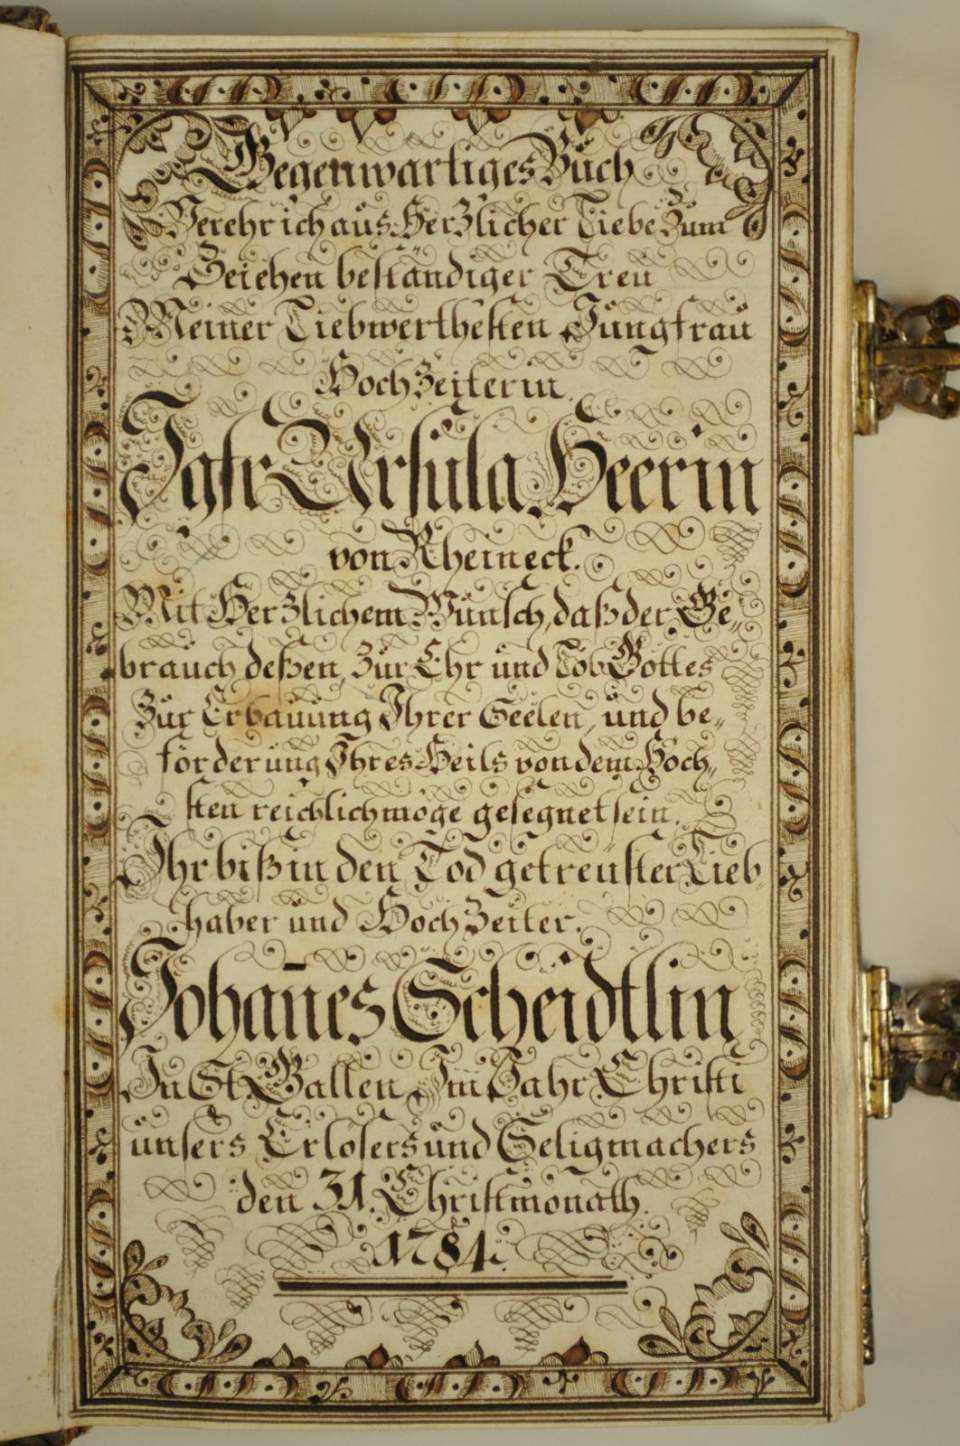 Gegenwärtiges Buch
Verehr ich aus Herzlicher Liebe Zum
Zeichen beständiger Treu
Meiner Liebwerthesten Jungfrau
Hochzeiterin.
Jgfr Ursula Heerin
von Rheineck.
Mit Herzlichem Wunsch, daß der Ge„
brauch deßen, Zur Ehr und Lob Gottes
Zur Erbauung Ihrer Seelen, und be„
förderung Ihres Heils von dem Höch„
sten reichlich möge gesegnet sein.
Ihr biß in den Tod getreuster Lieb„
haber und Hochzeiter.
Johan̄es Scheidtlin
In St. Gallen, Im Jahr Christi
unsers Erlösers und Seligmachers
den 31. Christmonath.
1784.